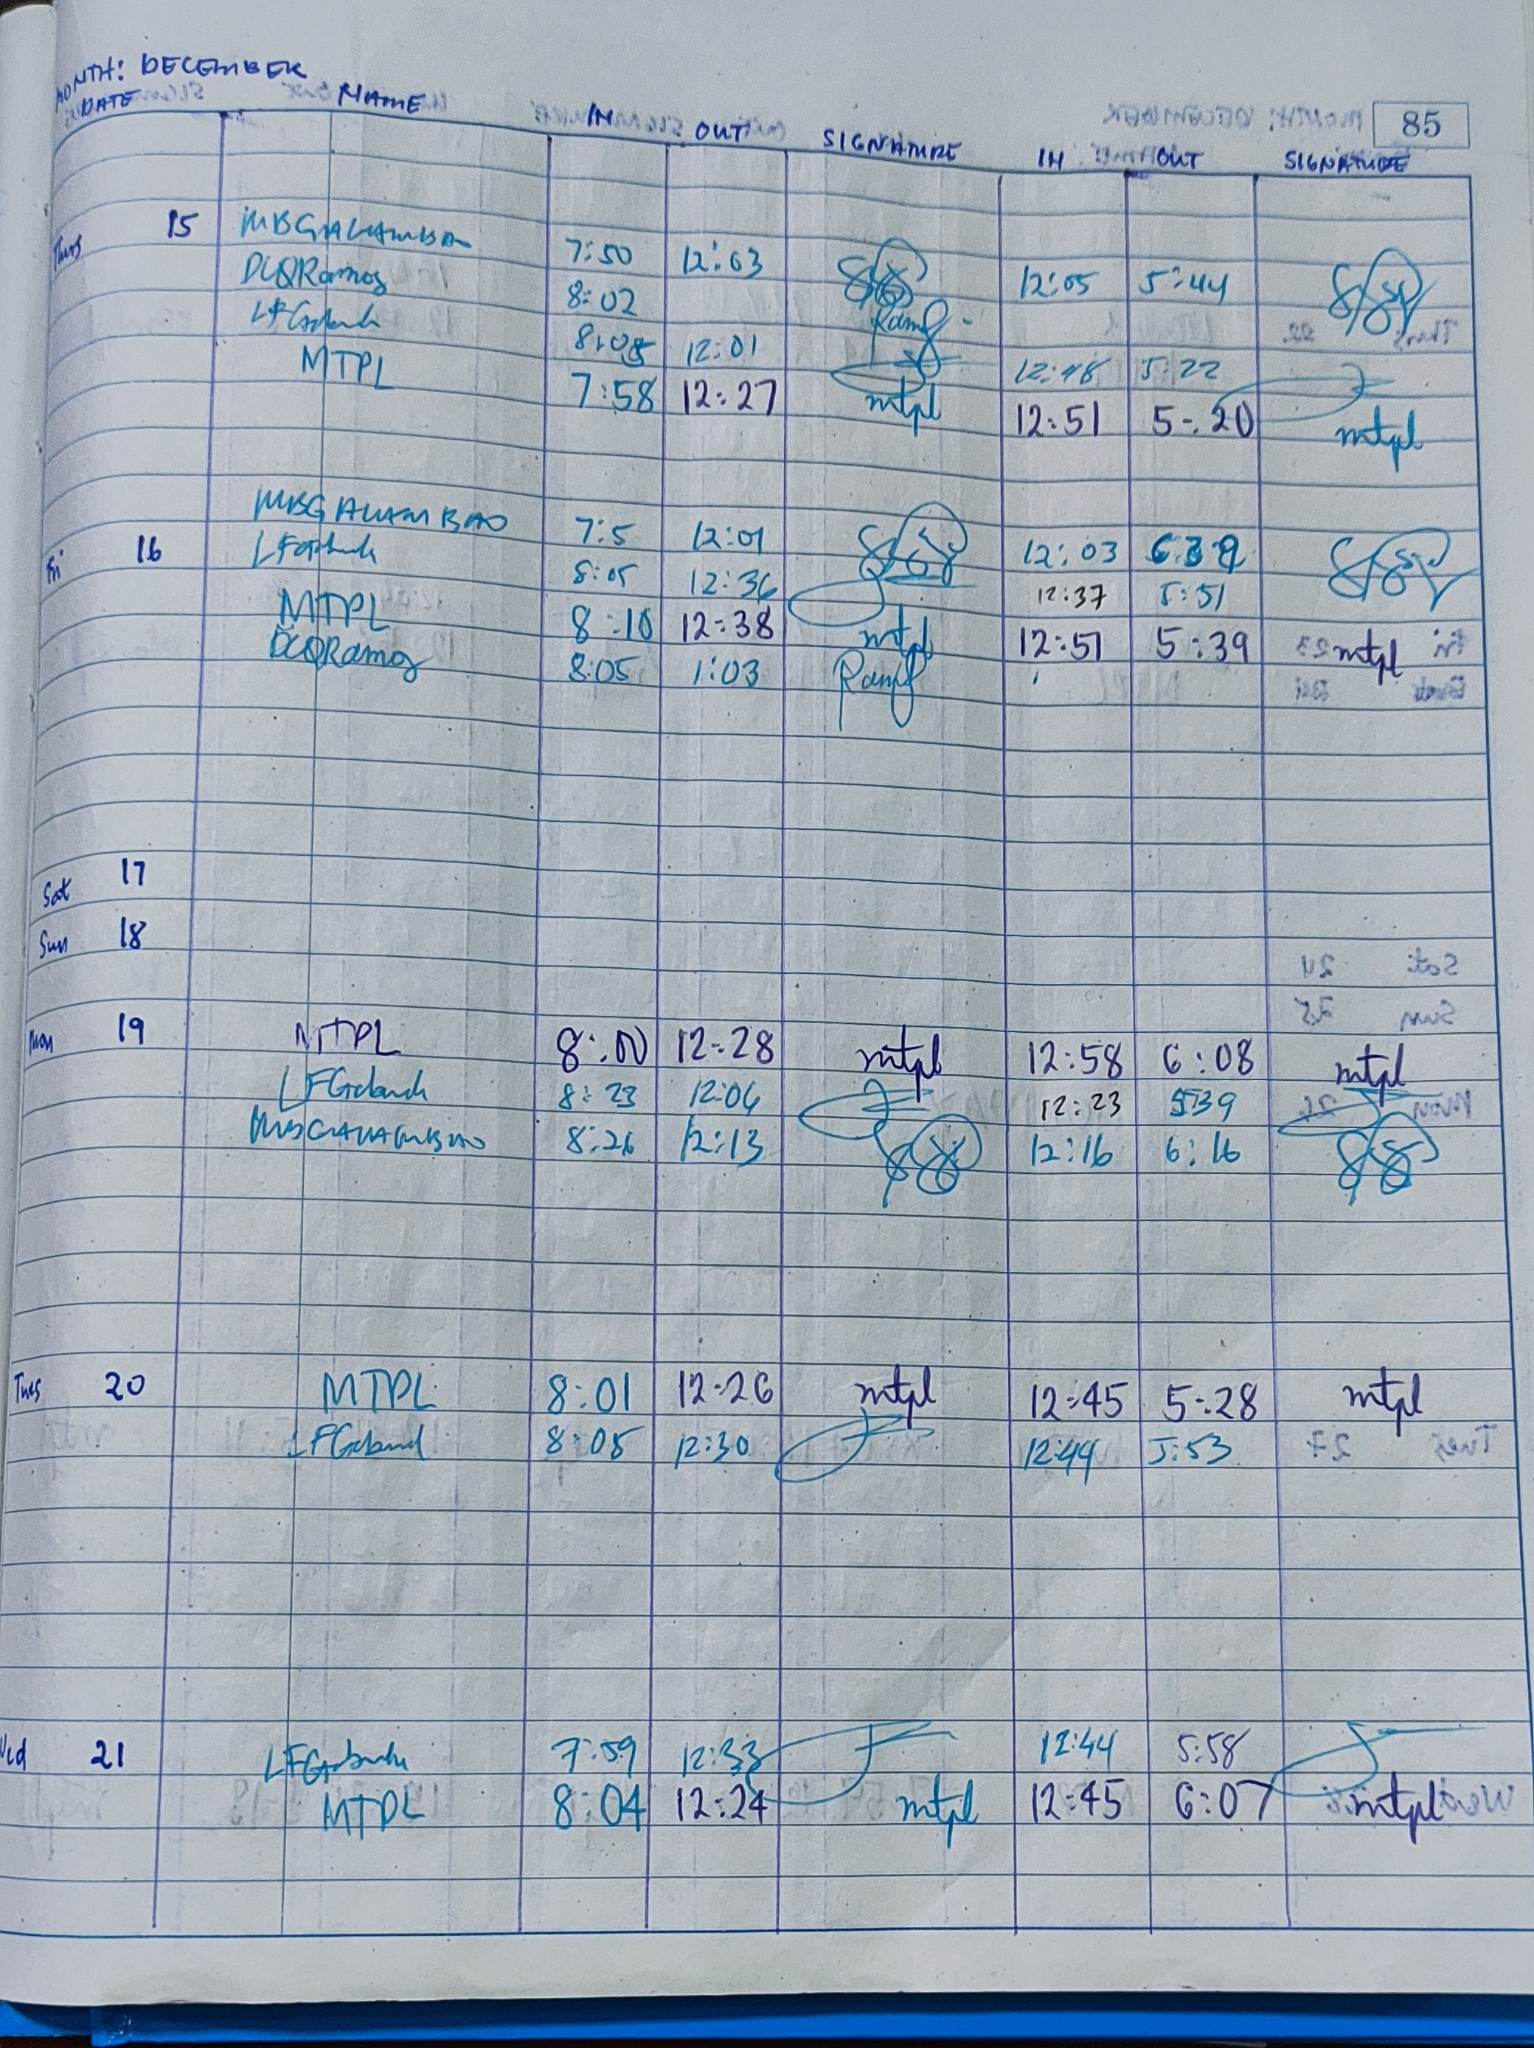 MONTH: DECEMBER
85
DATE NAME IN OUT SIGNATURE IN OUT SIGNATURE
Thurs 15 MBGALAMBAO 7:50 12:03 12:05 5:44
DCQRamos 8:02 Ramf
8:05 12:01 12:18 5:22
MTPL 7:58 12:27 mtpl 12:51 5:20 mtpl
Fri 16 MBGALAMBAO 7:5 12:01 12:03 6:39
8:05 12:36 12:37 5:51
MTPL 8:10 12:38 mtpl 12:51 5:39 mtpl
DCQRamos 8:05 1:03 Ramf
Sat 17
Sun 18
Mon 19 MTPL 8:00 12:28 mtpl 12:58 6:08 mtpl
8:23 12:06 12:23 5:39
MBGALAMBAO 8:26 12:13 12:16 6:16
Tues 20 MTPL 8:01 12:26 mtpl 12:45 5:28 mtpl
8:05 12:30 12:49 5:53
Wed 21 7:59 12:33 12:44 5:58
MTPL 8:04 12:24 mtpl 12:45 6:07 mtpl